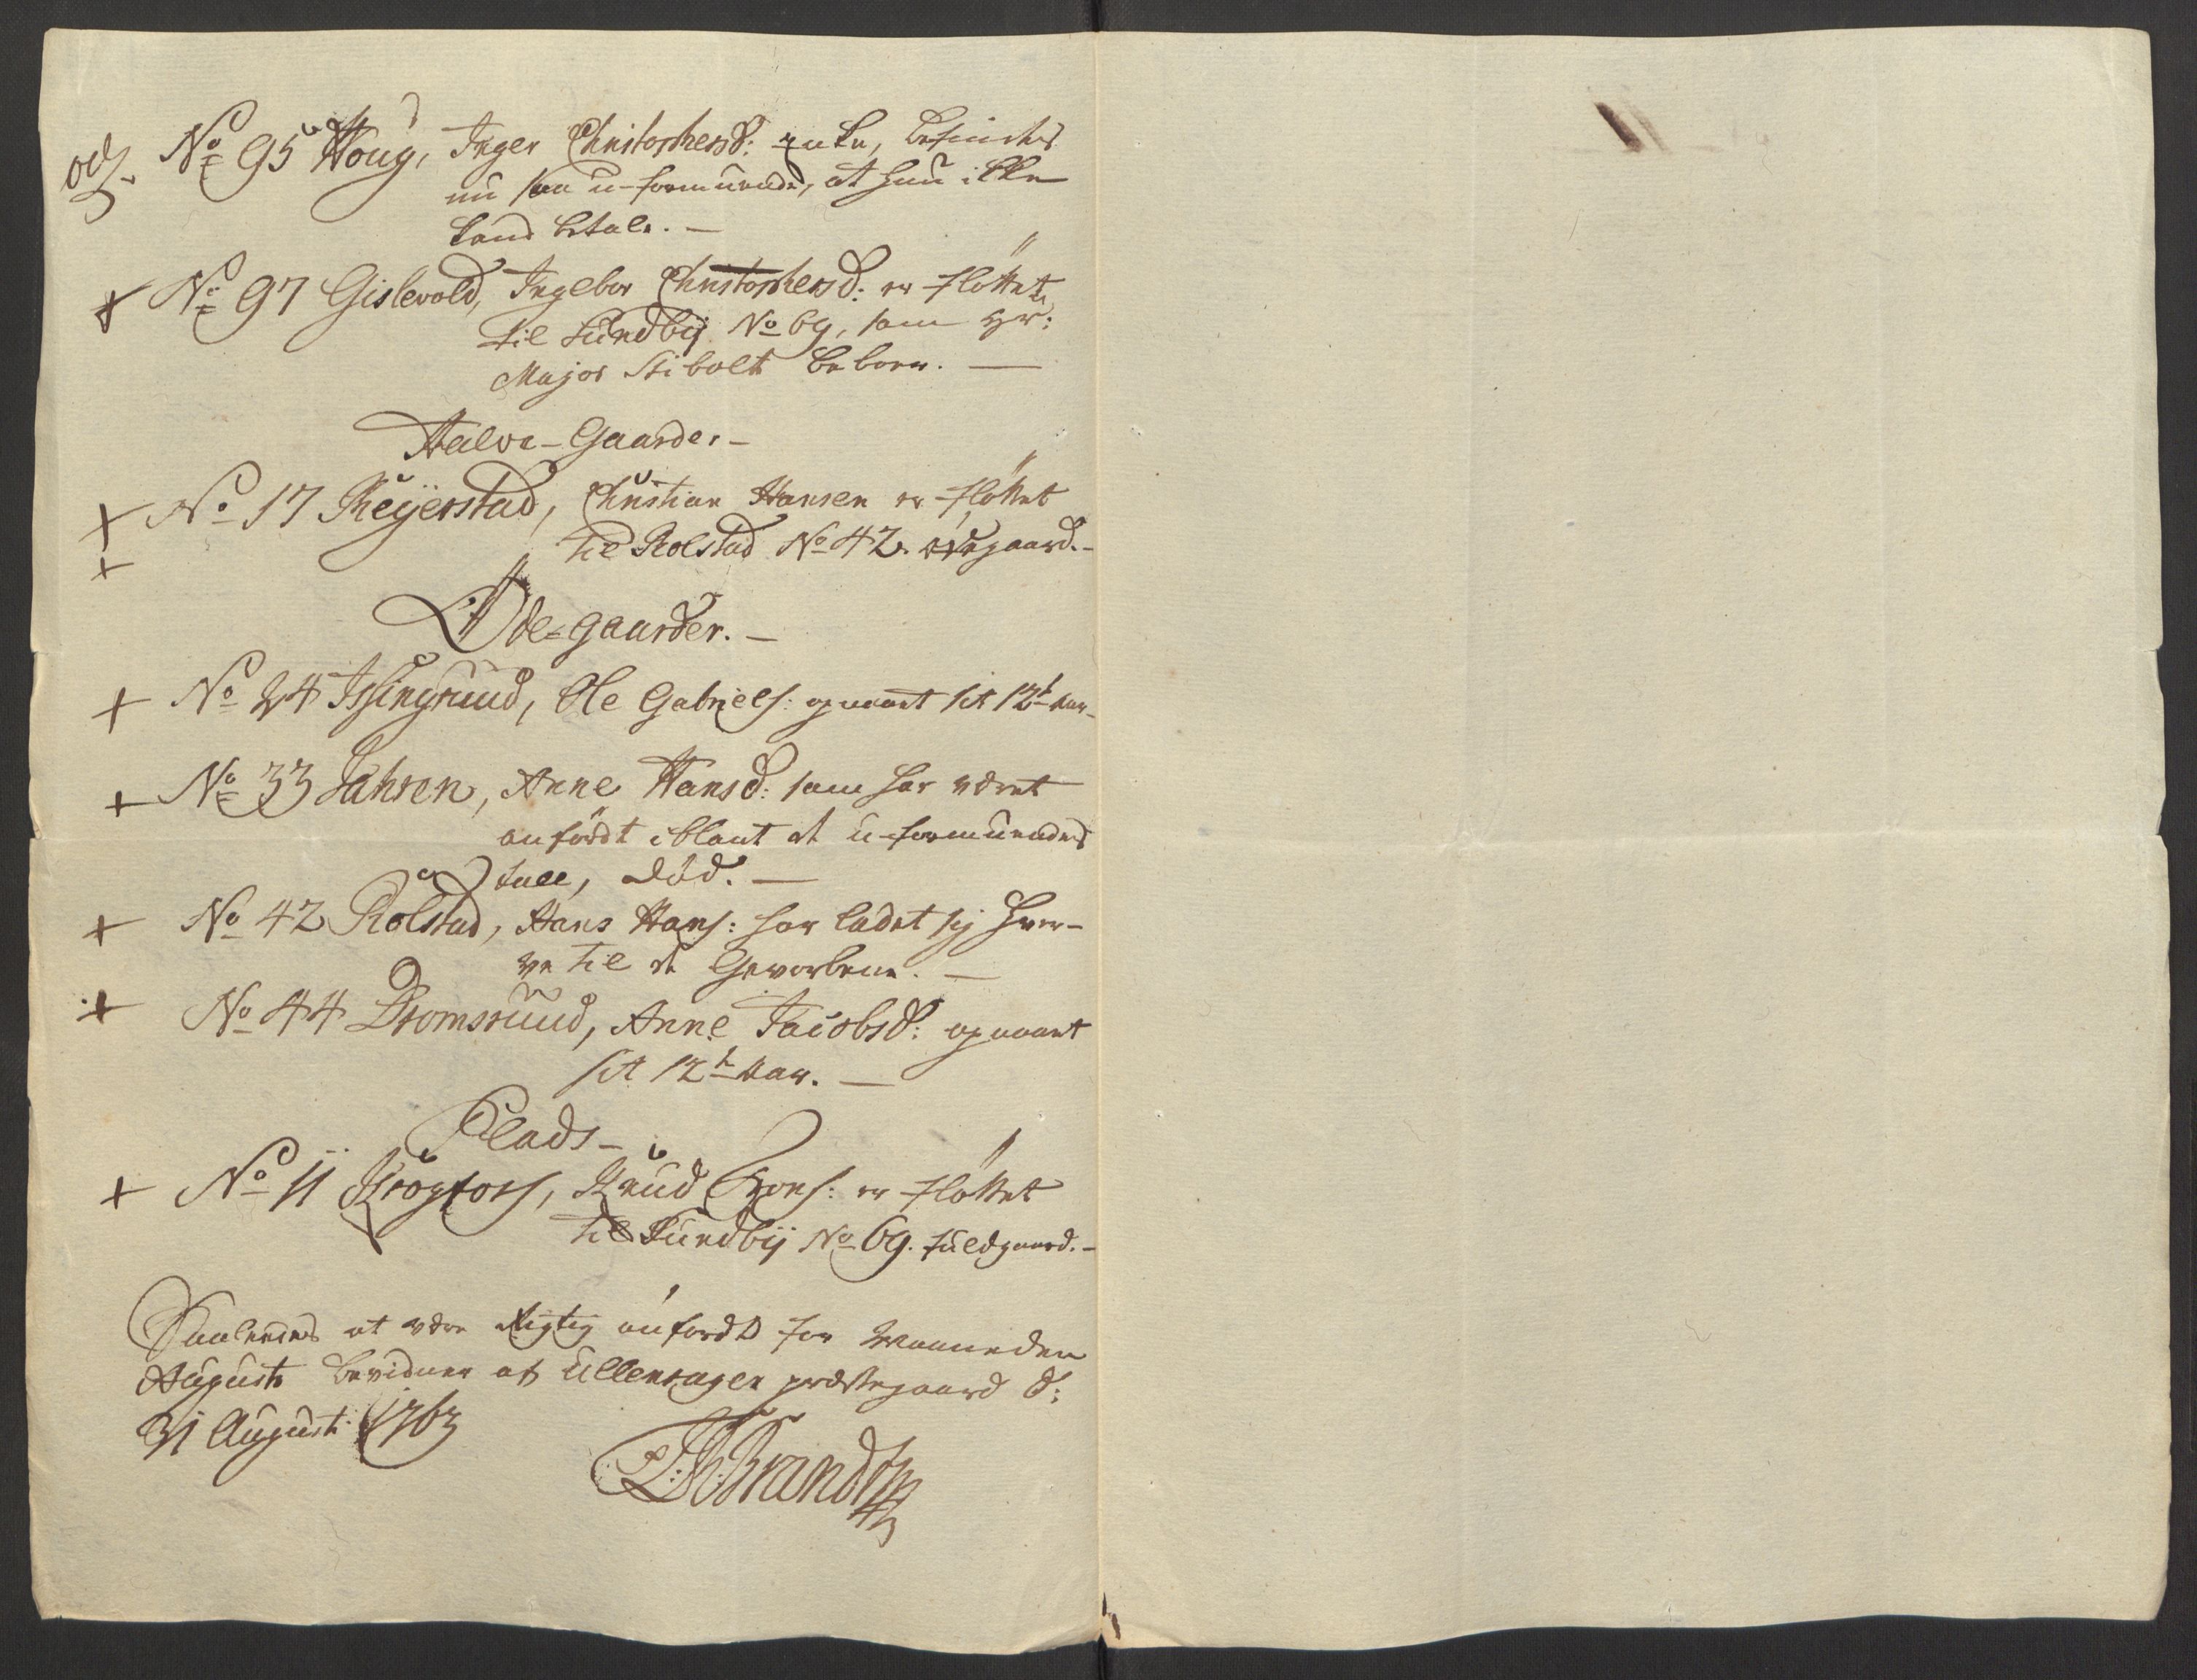 No 95 Houg, Inger Christophersd: enke, befindes
nu saa u-formuende, at hun ikke
kand betale. —
No 97 Gislevold, Ingebor Christophersd: er flöttet
til Sundbÿ No 69, som Hr:
Major Stibolt beboer. —
Halve-Gaarder-
No 17 Reÿerstad, Christian Hansen er flöttet
til Rolstad No 42. ödegaard.-
Öde-gaarder. —
No 24 Islingruud, Ole Gabriels: opnaaet sit 12te Aar-
No 33 Jahren, Anne Hansd: som har været
anfördt iblant et u-formuendes
tall, död. —
No 42 Rolstad, Hans Hans: har ladet sig hver-
ve til de Gevorbene. —
No 44 Dromsruud, Anne Jacobsd: opnaaet
sit 12te Aar. —
Plads-
No 11 Krogfors, Knud : er flöttet
til Sundbÿ No 69. fuldgaard.-
Saaledes at være Rigtig anfördt for Maaneden
Augusti bevidner af Ullensager præstegaard d:
31 Augusti 1763
Brandt